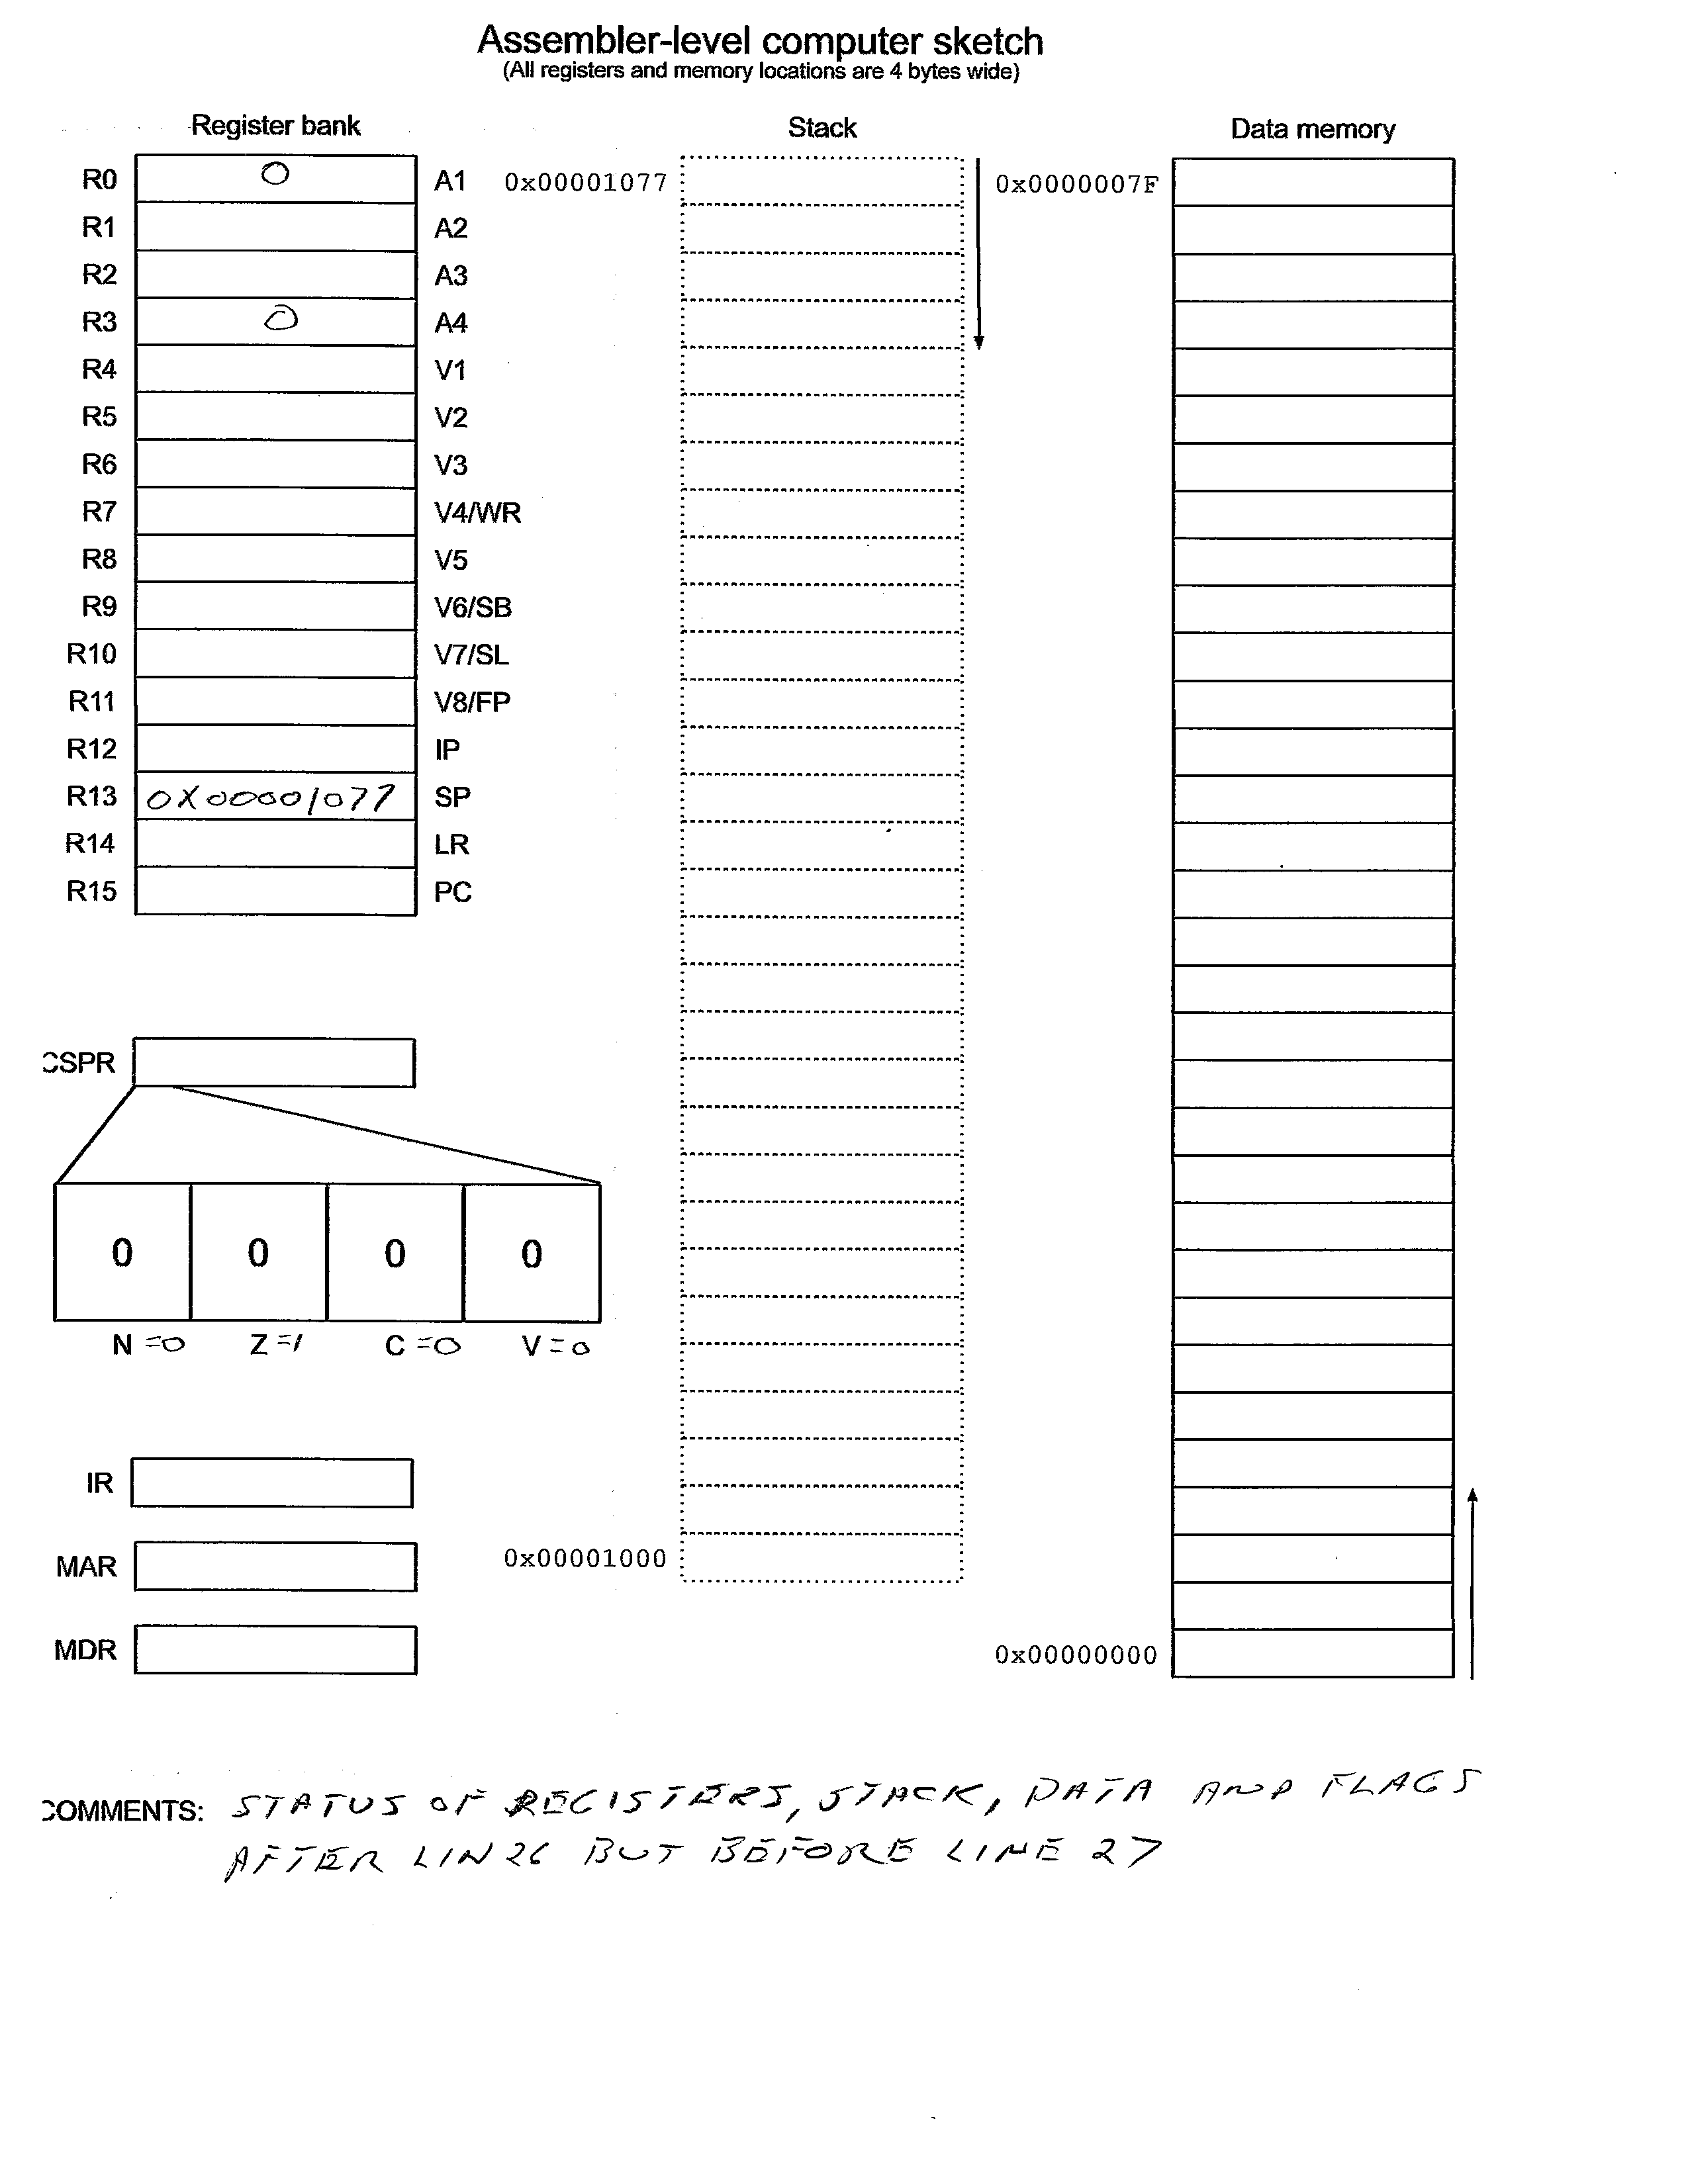 Assembler-level computer sketch
(All registers and memory locations are 4 bytes wide)
Register bank
R0 0 A1
R1 A2
R2 A3
R3 0 A4
R4 V1
R5 V2
R6 V3
R7 V4/WR
R8 V5
R9 V6/SB
R10 V7/SL
R11 V8/FP
R12 IP
R13 0X00001077 SP
R14 LR
R15 PC
CSPR
0 0 0 0
N =0 Z =1 C =0 V =0
IR
MAR
MDR
Stack
0x00001077
0x00001000
Data memory
0x0000007F
0x00000000
COMMENTS: STATUS OF REGISTERS, STACK, DATA AND FLAGS
AFTER LIN 26 BUT BEFORE LINE 27